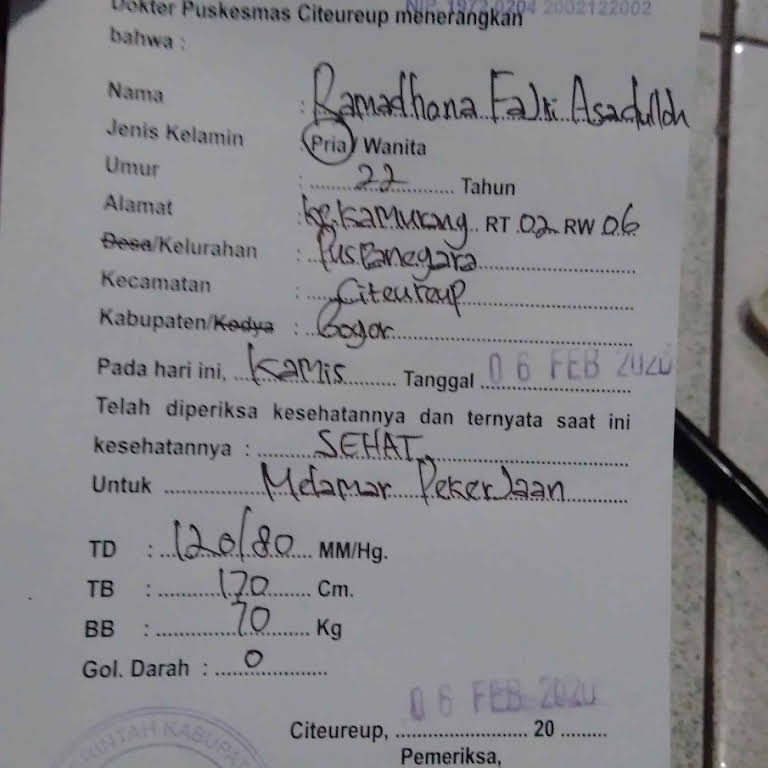 NIP. 1972 0204 2002122002
Dokter Puskesmas Citeureup menerangkan
bahwa :
Nama : Ramadhana Fajri Asadulloh
Jenis Kelamin : Pria / Wanita
Umur : 22 Tahun
Alamat : kp. kamurang RT 02 RW 06
Desa/Kelurahan : Puspanegara
Kecamatan : Citeureup
Kabupaten/Kodya : Bogor
Pada hari ini, Kamis Tanggal 06 FEB 2020
Telah diperiksa kesehatannya dan ternyata saat ini
kesehatannya : SEHAT
Untuk Melamar Pekerjaan
TD : 120/80 MM/Hg.
TB : 170 Cm.
BB : 70 Kg
Gol. Darah : O
06 FEB 2020
Citeureup, 20
Pemeriksa,